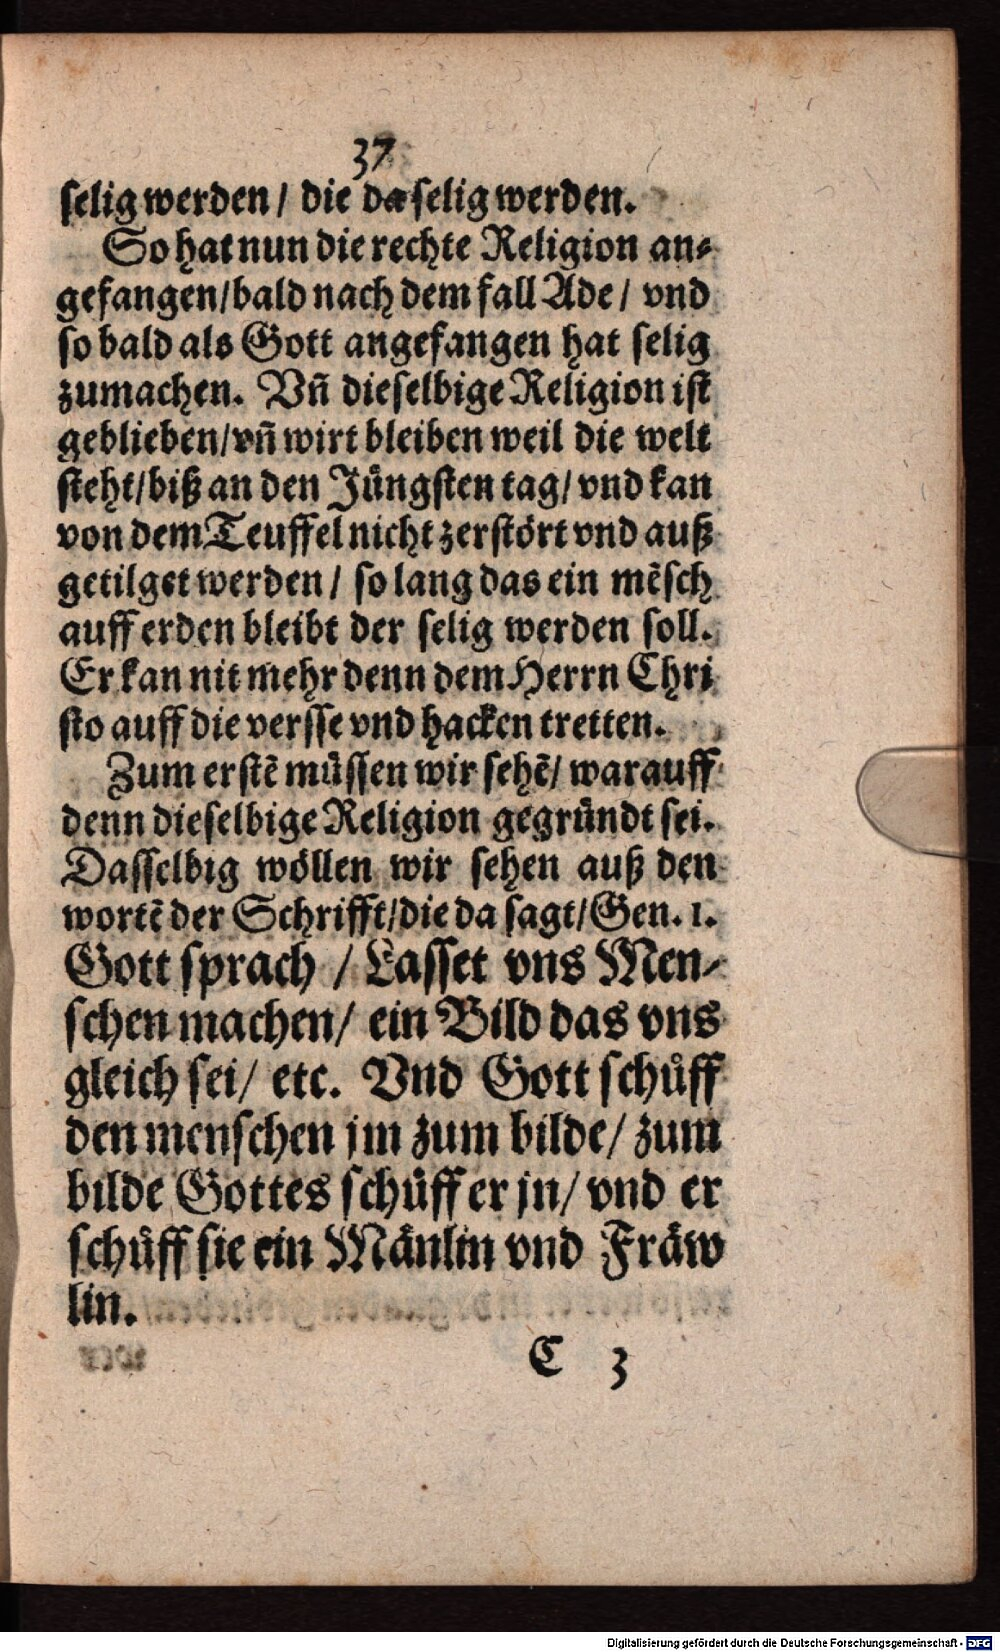 37
selig werden / die da selig werden.
So hat nun die rechte Religion an⸗
gefangen / bald nach dem fall Ade / vnd
so bald als Gott angefangen hat selig
zumachen. Vñ dieselbige Religion ist
geblieben / vñ wirt bleiben weil die welt
steht / biß an den Jüngsten tag / vnd kan
von dem Teuffel nicht zerstört vnd auß
getilget werden / so lang das ein mẽsch
auff erden bleibt der selig werden soll.
Er kan nit mehr denn dem Herrn Chri
sto auff die versse vnd hacken tretten.
Zum erstẽ müssen wir sehẽ / warauff
denn dieselbige Religion gegründt sei.
Dasselbig wöllen wir sehen auß den
wortẽ der Schrifft / die da sagt / Gen. 1.
Gott sprach / Lasset vns Men⸗
schen machen / ein Bild das vns
gleich sei / etc. Vnd Gott schůff
den menschen jm zum bilde / zum
bilde Gottes schůff er jn / vnd er
schůff sie ein Mänlin vnd Fräw
lin.
C 3
Digitalisierung gefördert durch die Deutsche Forschungsgemeinschaft - DFG